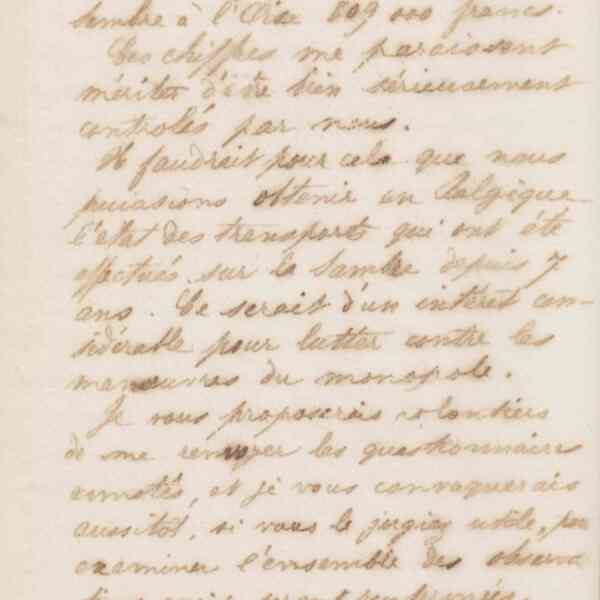 Sambre à l'Oise 809 000 francs.
Ces chiffres me paraissent
mériter d'être bien sérieusement
controlés par nous.
Il faudrait pour cela que nous
puissions obtenir en Belgique
l'état des transports qui ont été
effectués sur la Sambre depuis 7
ans. Ce serait d'un intérêt con-
sidérable pour lutter contre les
manœuvres du monopole.
Je vous proposerais volontiers
de me renvoyer les questionnaires
annotés, et je vous convoquerais
aussitôt, si vous le jugiez utile, pour
examiner l'ensemble des observa
tions qui y seront